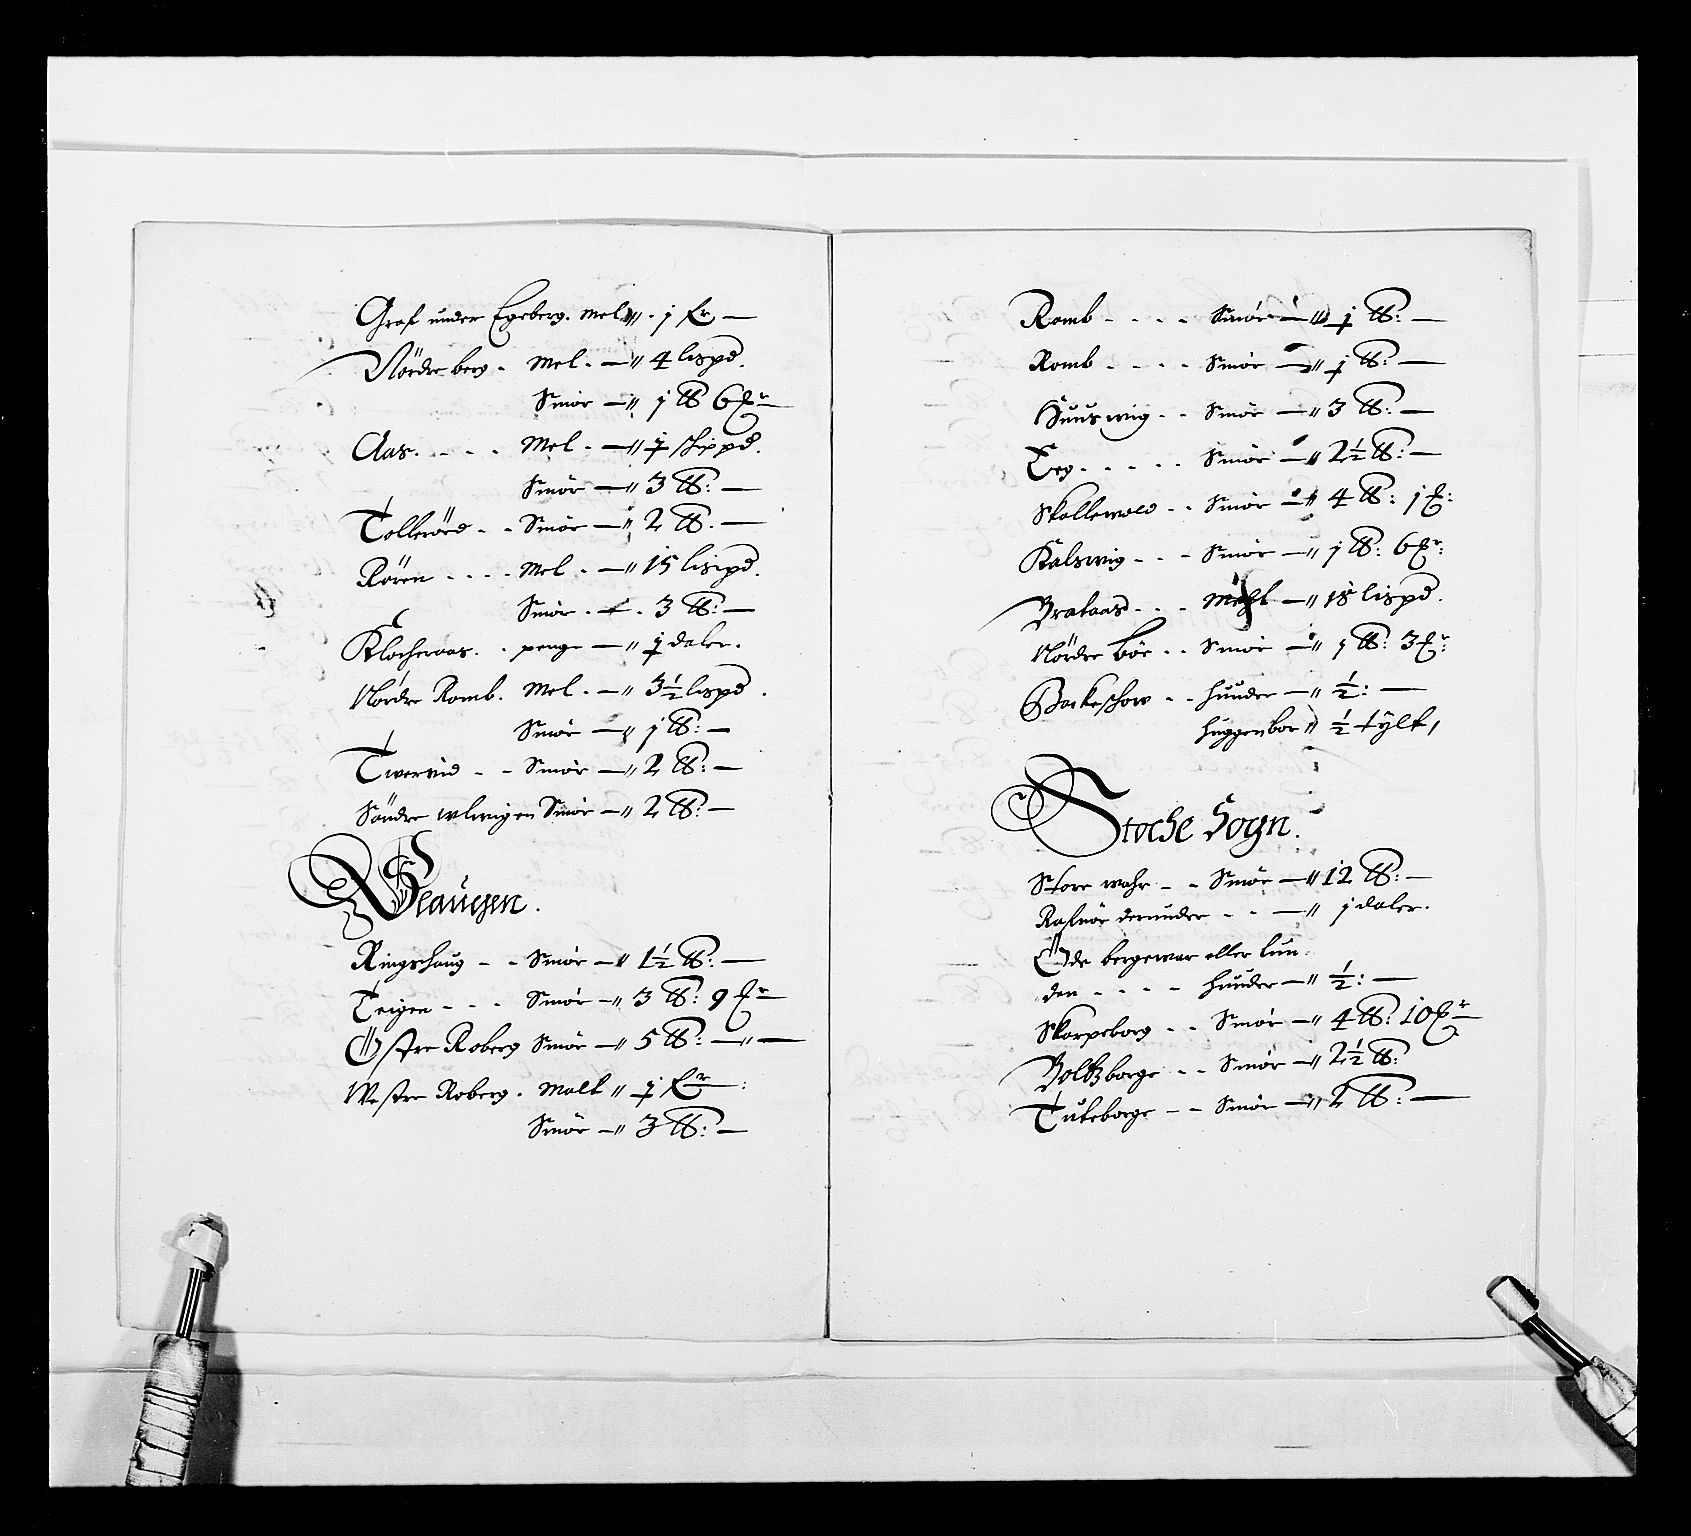 Graf under Egeberg. Mel – j Er –
Nördre berg - Mel. – 4 lispd.
Smör – j ℔ 6 Er
Aas. - - - Mel. – j skippd.
Smör – 3 ℔: –
Tolleröed - - Smör – 2 ℔. –
Rören - - - - Mel. – 15 lispd.
Smör. – . 3 ℔: –
Klocheraas. - penge – j daler.
Nördre Romb. Mel. – 3½ lispd.
Smör – j ℔: –
Tweruid - - Smör – 2 ℔: –
Söndre wlwigen Smör – 2 ℔: –
Slauegen.
Ringshaug - - Smör – 1½ ℔: –
Teigen - - - Smör – 3 ℔: 9 Er
Östre Roberg Smör – 5 ℔: –
Westre Roberg. Malt j Er:
Smör – 3 ℔: –
Romb - - - - Smör – j ℔: –
Romb - - - - Smör – j ℔: –
Huuswiig - - Smör – 3 ℔: –
Eeg - - - - - Smör – 2½ ℔: –
Skallewold - - Smör – 4 ℔: j E:
Kalswiig - - - Smör – j ℔: 6 Er:
Brataas - - - Mehl – 18 lispd.
Nördre Böe - - Smör – j ℔: 3 Er:
Backeshow - - huuder – ½: –
huggenbor ½ tylt,
Stoche Sogn.
Store wahr - - Smör – 12 ℔: –
Rafnöe derunder - - – j daler.
Öde bergewar eller lun-
den - - - - huuder – ½: –
Skarpeborg - - Smör – 4 ℔: 10 Er
Boltzborge - - Smör – 2½ ℔:
Tuteborge - - Smör – 2 ℔: –